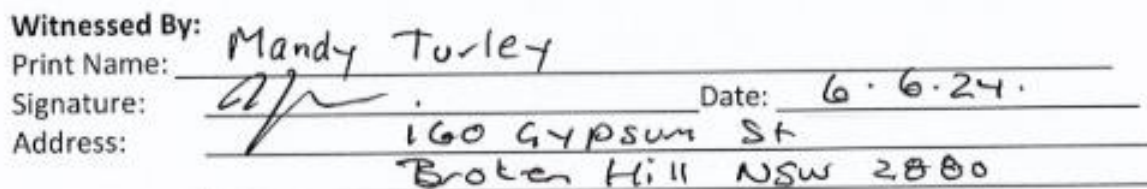 Witnessed By:
Print Name: Mandy Turley
Signature: Date: 6.6.24.
Address: 160 Gypsum St
Broken Hill NSW 2880